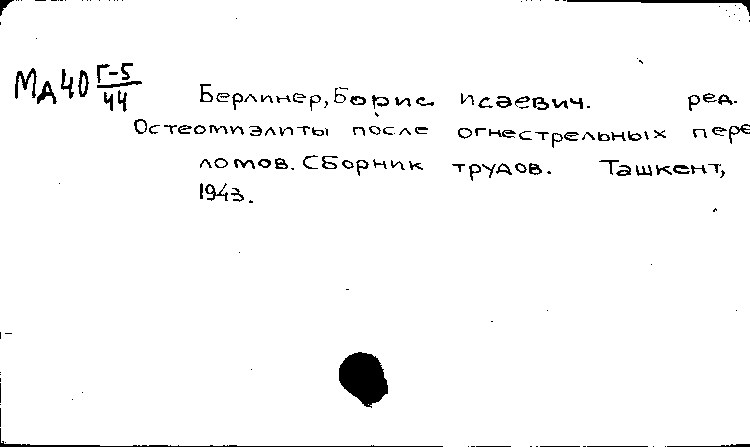 МА40 Г-5/44
Берлинер, Борис Исаевич. ред.
Остеомиэлиты после огнестрельных пере
ломов. Сборник трудов. Ташкент,
1943.